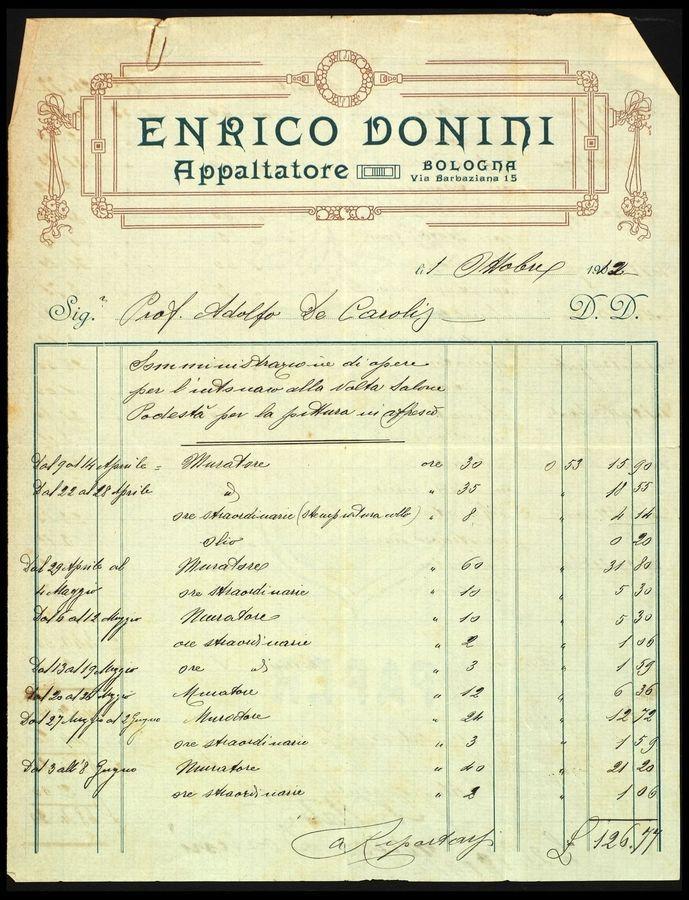 ENRICO DONINI
Appaltatore BOLOGNA
Via Barbaziana 15
li 1 Ottobre 1912
Sig.r Prof. Adolfo De Carolis D. D.
Somministrazione di opere
per l'intonaco alla Volta Salone
Podestà per la pittura in affresco
Dal 9 al 14 Aprile = Muratore ore 30 0 53 15 90
Dal 22 al 28 Aprile " id " 35 " 18 55
ore straordinarie ( " 8 " 4 14
olio 0 20
Dal 29 Aprile al Muratore " 60 " 31 80
4 Maggio ore straordinarie " 10 " 5 30
Dal 6 al 12 Maggio Muratore " 10 " 5 30
ore straordinarie " 2 " 1 06
Dal 13 al 19 Maggio ore id " 3 " 1 59
Dal 20 al 26 Maggio Muratore " 12 " 6 36
Dal 27 Maggio al 2 Giugno Muratore " 24 " 12 72
ore straordinarie " 3 " 1 59
Dal 3 all'8 Giugno Muratore " 40 " 21 20
ore straordinarie " 2 " 1 06
a Riportarsi £ 126.77